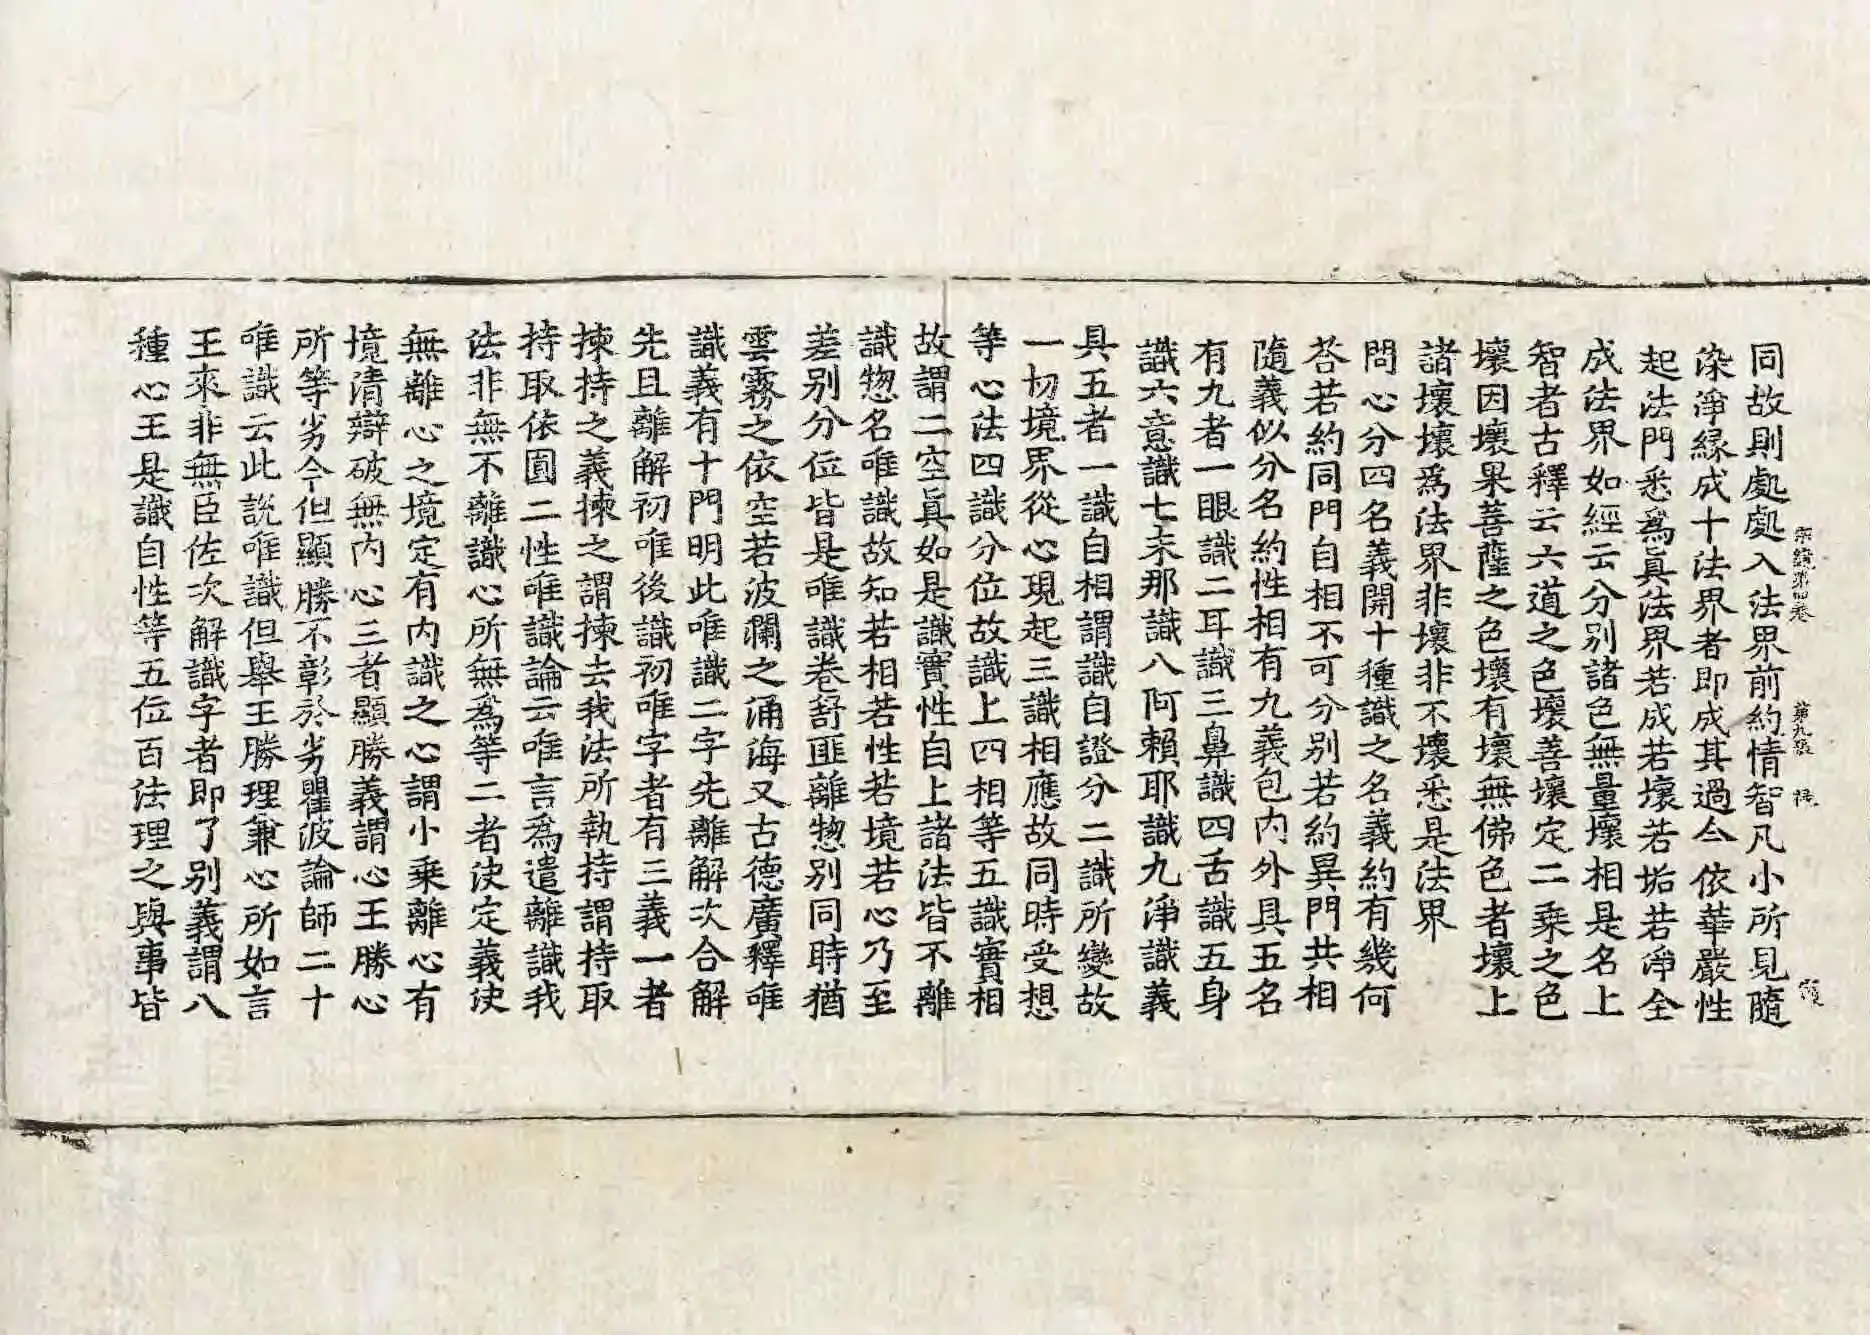 宗鏡第四卷 第九張 禄
同故則處處入法界前約情智凡小所見隨
染淨緣成十法界者即成其過今依華嚴性
起法門悉爲眞法界若成若壞若垢若淨全
成法界如經云分別諸色無量壞相是名上
智者古釋云六道之色壞善壞定二乘之色
壞因壞果菩薩之色壞有壞無佛色者壞上
諸壞壞爲法界非壞非不壞悉是法界
問心分四名義開十種識之名義約有幾何
荅若約同門自相不可分別若約異門共相
隨義似分名約性相有九義包內外具五名
有九者一眼識二耳識三鼻識四舌識五身
識六意識七末那識八阿賴耶識九淨識義
具五者一識自相謂識自證分二識所變故
一切境界從心現起三識相應故同時受想
等心法四識分位故識上四相等五識實相
故謂二空眞如是識實性自上諸法皆不離
識惣名唯識故知若相若性若境若心乃至
差別分位皆是唯識卷舒匪離惣別同時猶
雲霧之依空若波瀾之涌海又古德廣釋唯
識義有十門明此唯識二字先離解次合解
先且離解初唯後識初唯字者有三義一者
揀持之義揀之謂揀去我法所執持謂持取
持取依圓二性唯識論云唯言爲遣離識我
法非無不離識心所無爲等二者決定義決
無離心之境定有內識之心謂小乘離心有
境清辯破無內心三者顯勝義謂心王勝心
所等劣今但顯勝不彰於劣瞿波論師二十
唯識云此說唯識但舉王勝理兼心所如言
王來非無臣佐次解識字者即了別義謂八
種心王是識自性等五位百法理之與事皆